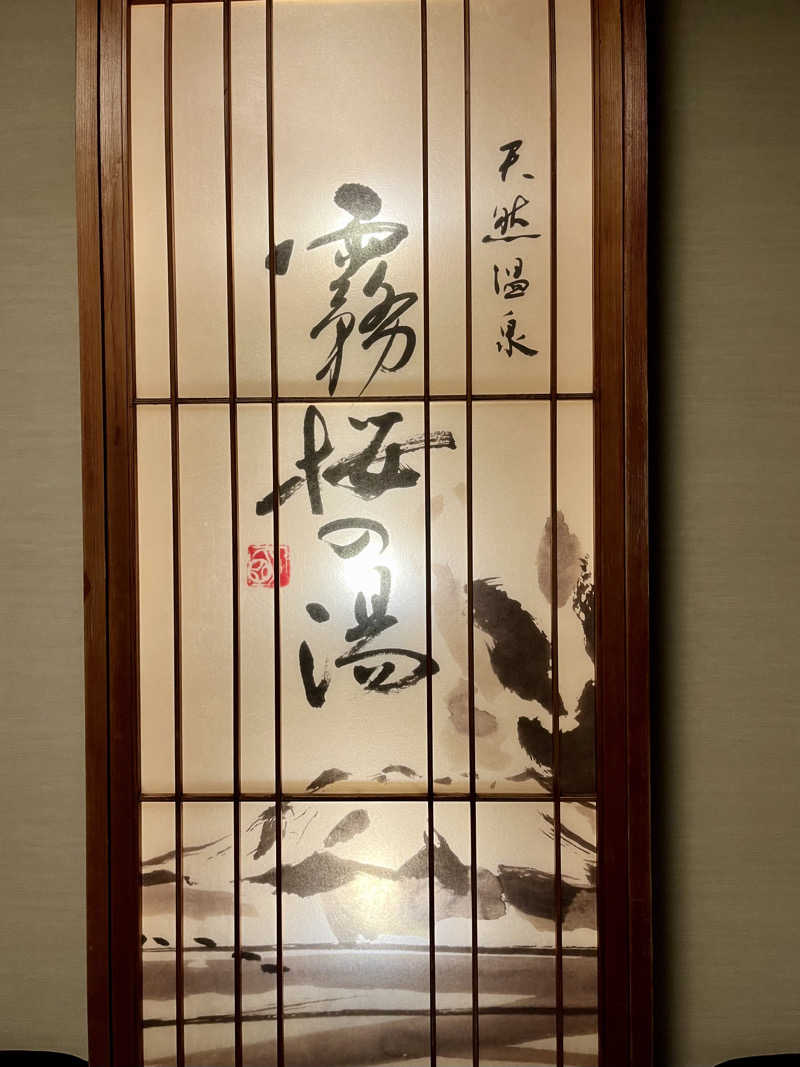 天然温泉
霧桜の湯